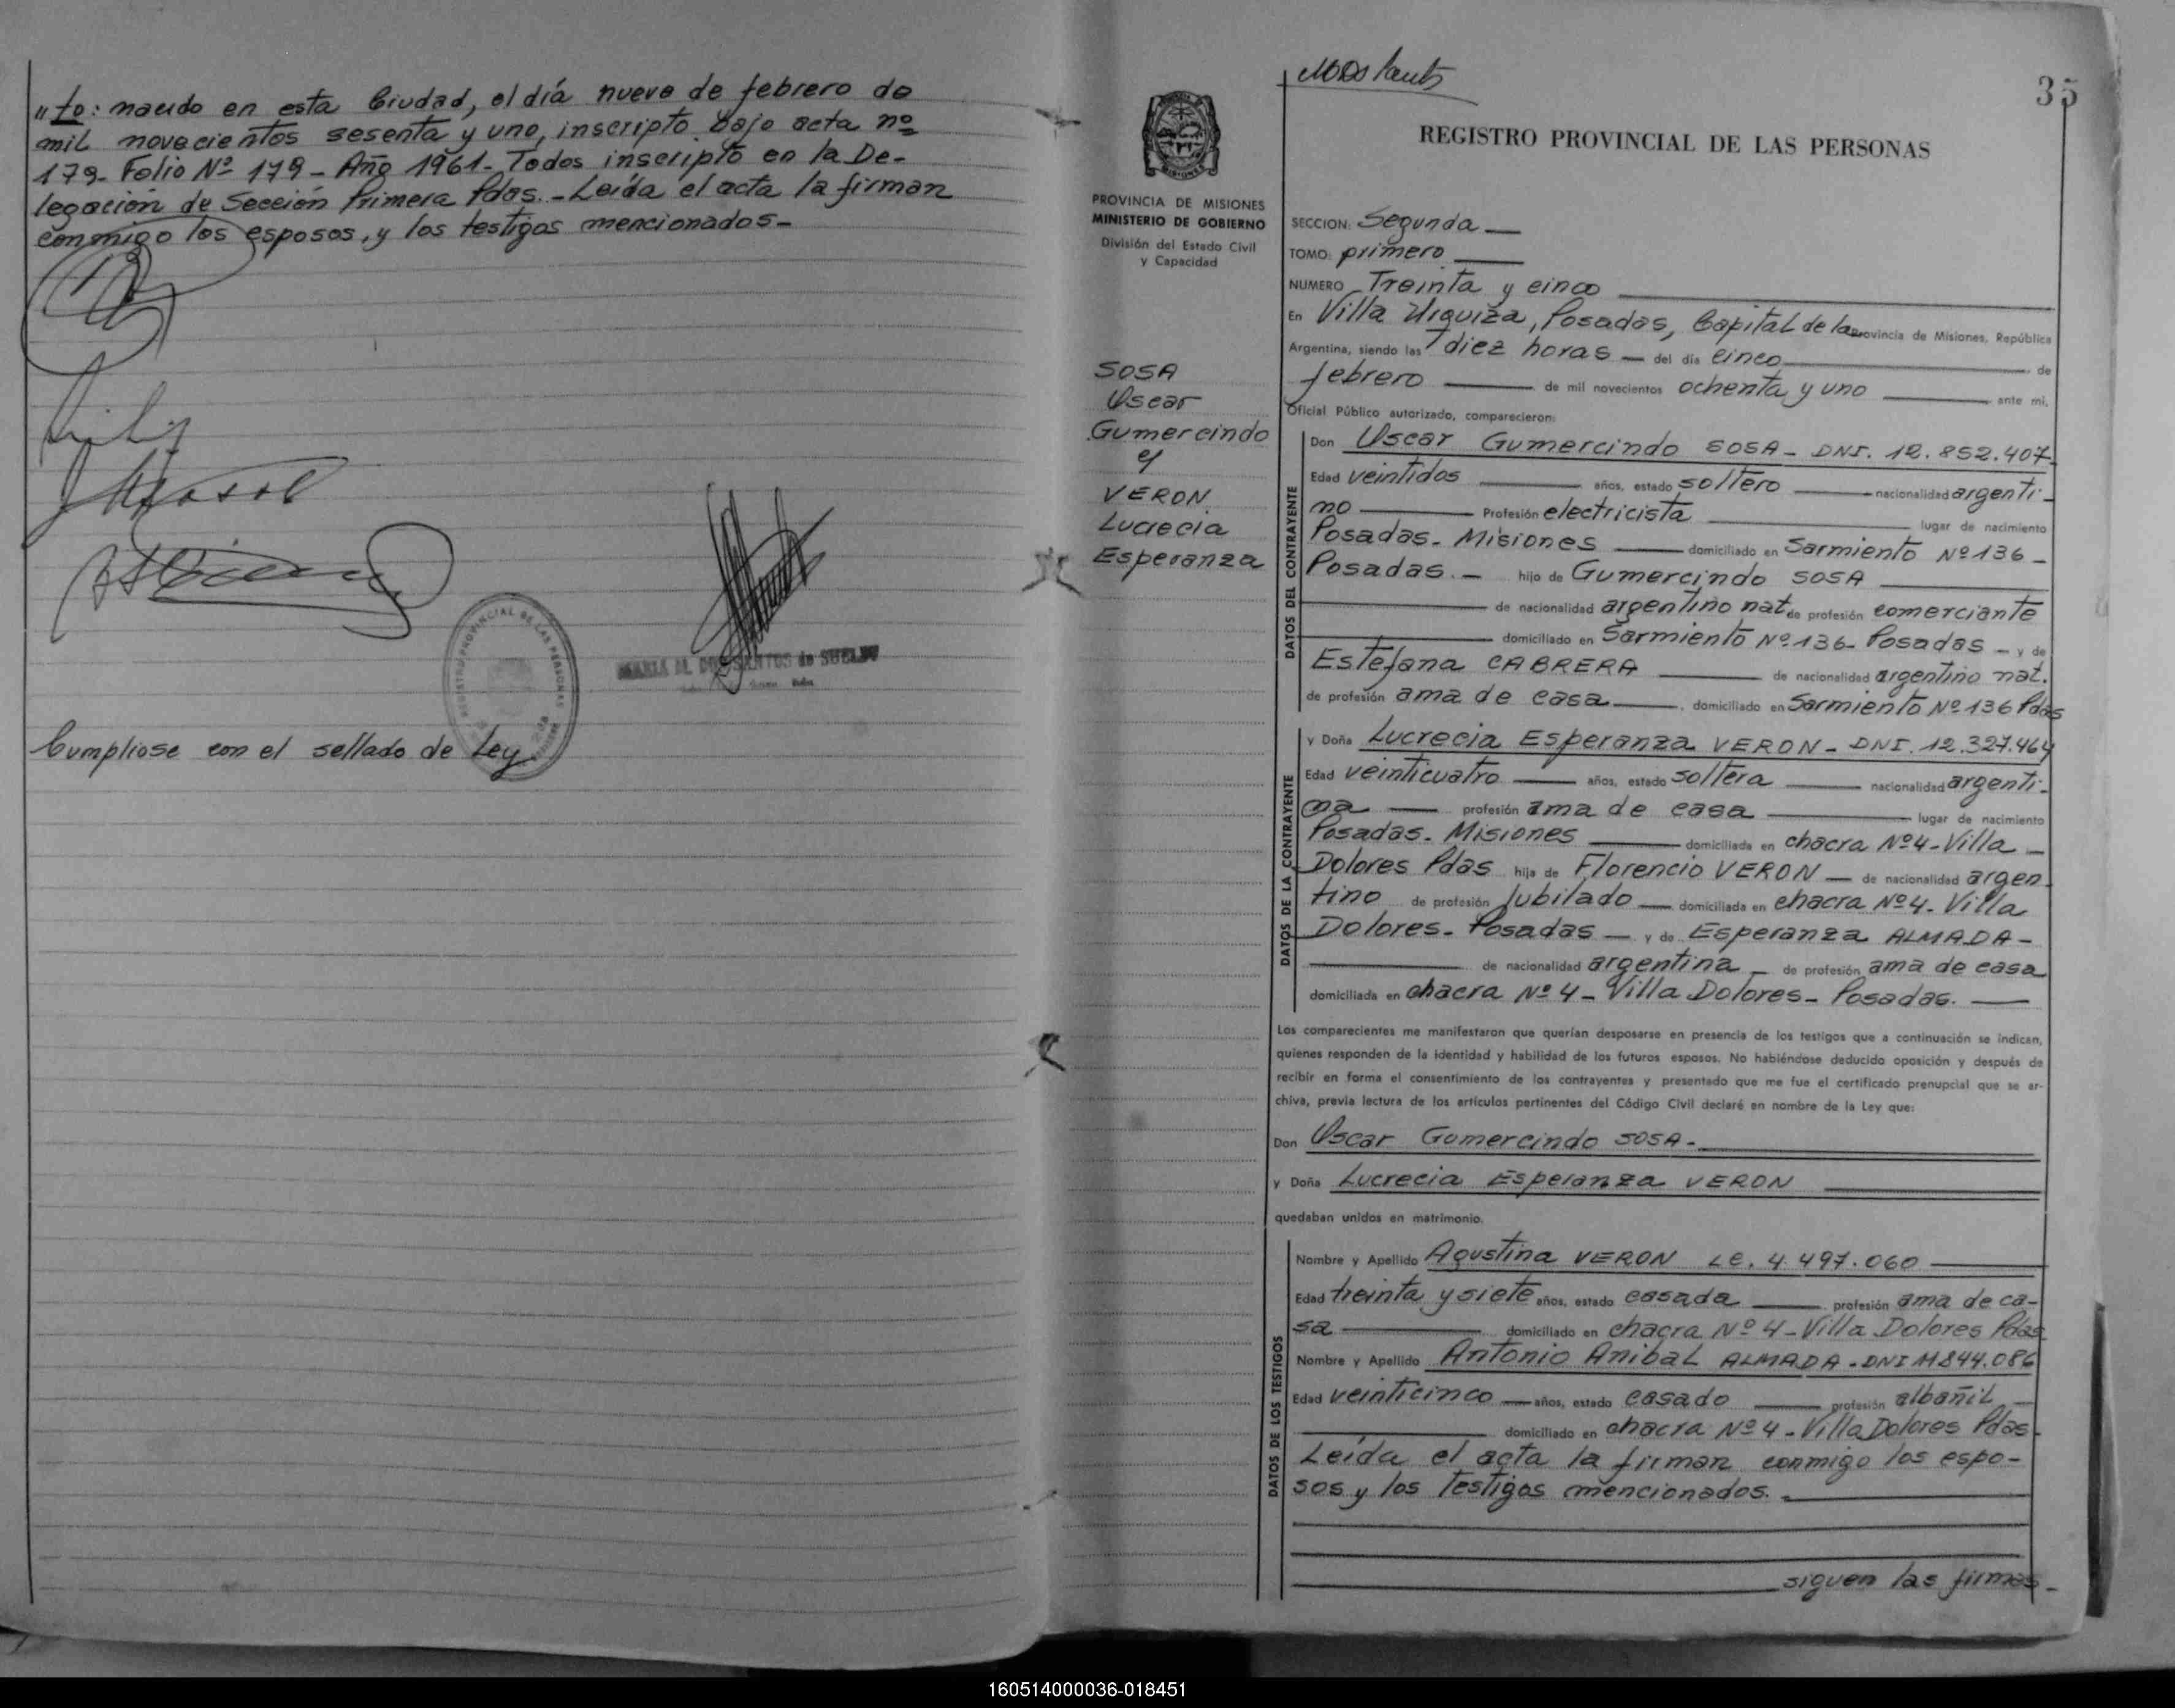 "to: nacido en esta Ciudad, el día nueve de febrero de
mil novecientos sesenta y uno, inscripto bajo acta nº
179- Folio Nº 179- Año 1961- Todos inscripto en la De-
legación de Sección Primera Pdas.- Leída el acta la firman
conmigo los esposos, y los testigos mencionados-
REGISTRO PROVINCIAL DE LAS PERSONAS
MARIA M. DOS SANTOS de
Cumpliose con el sellado de Ley
35
REGISTRO PROVINCIAL DE LAS PERSONAS
PROVINCIA DE MISIONES
MINISTERIO DE GOBIERNO
División del Estado Civil
y Capacidad
SOSA
Oscar
Gumercindo
y
VERON
Lucrecia
Esperanza
SECCION: Segunda
TOMO: primero
NUMERO Treinta y cinco
En Villa Urquiza, Posadas, Capital de la Provincia de Misiones, República
Argentina, siendo las diez horas - del día cinco de
febrero de mil novecientos ochenta y uno ante mí,
Oficial Público autorizado, comparecieron:
DATOS DEL CONTRAYENTE
Don Oscar Gumercindo SOSA- DNI. 12.852.407-
Edad veintidos años, estado soltero nacionalidad argenti-
no Profesión electricista lugar de nacimiento
Posadas- Misiones domiciliado en Sarmiento Nº 136-
Posadas.- hijo de Gumercindo SOSA
de nacionalidad argentino nat. de profesión comerciante
domiciliado en Sarmiento Nº 136- Posadas - y de
Estefana CABRERA de nacionalidad argentino nat.
de profesión ama de casa, domiciliado en Sarmiento Nº 136 Pdas
DATOS DE LA CONTRAYENTE
y Doña Lucrecia Esperanza VERON- DNI. 12.327.464
Edad veinticuatro años, estado soltera nacionalidad argenti-
na profesión ama de casa lugar de nacimiento
Posadas- Misiones domiciliada en chacra Nº 4- Villa -
Dolores Pdas hija de Florencio VERON - de nacionalidad argen-
tino de profesión Jubilado domiciliada en chacra Nº 4- Villa
Dolores- Posadas - y de Esperanza ALMADA-
de nacionalidad argentina - de profesión ama de casa
domiciliada en chacra Nº 4- Villa Dolores- Posadas.
Los comparecientes me manifestaron que querían desposarse en presencia de los testigos que a continuación se indican,
quienes responden de la identidad y habilidad de los futuros esposos. No habiéndose deducido oposición y después de
recibir en forma el consentimiento de los contrayentes y presentado que me fue el certificado prenupcial que se ar-
chiva, previa lectura de los artículos pertinentes del Código Civil declaré en nombre de la Ley que:
Don Oscar Gumercindo SOSA-
y Doña Lucrecia Esperanza VERON
quedaban unidos en matrimonio.
DATOS DE LOS TESTIGOS
Nombre y Apellido Agustina VERON LC. 4.497.060
Edad treinta y siete años, estado casada profesión ama de ca-
sa domiciliado en chacra Nº 4- Villa Dolores Pdas
Nombre y Apellido Antonio Anibal ALMADA- DNI 11844.086
Edad veinticinco años, estado casado profesión albañil
domiciliado en chacra Nº 4- Villa Dolores Pdas-
Leída el acta la firman conmigo los espo-
sos y los testigos mencionados.-
siguen las firmas-
160514000036-018451